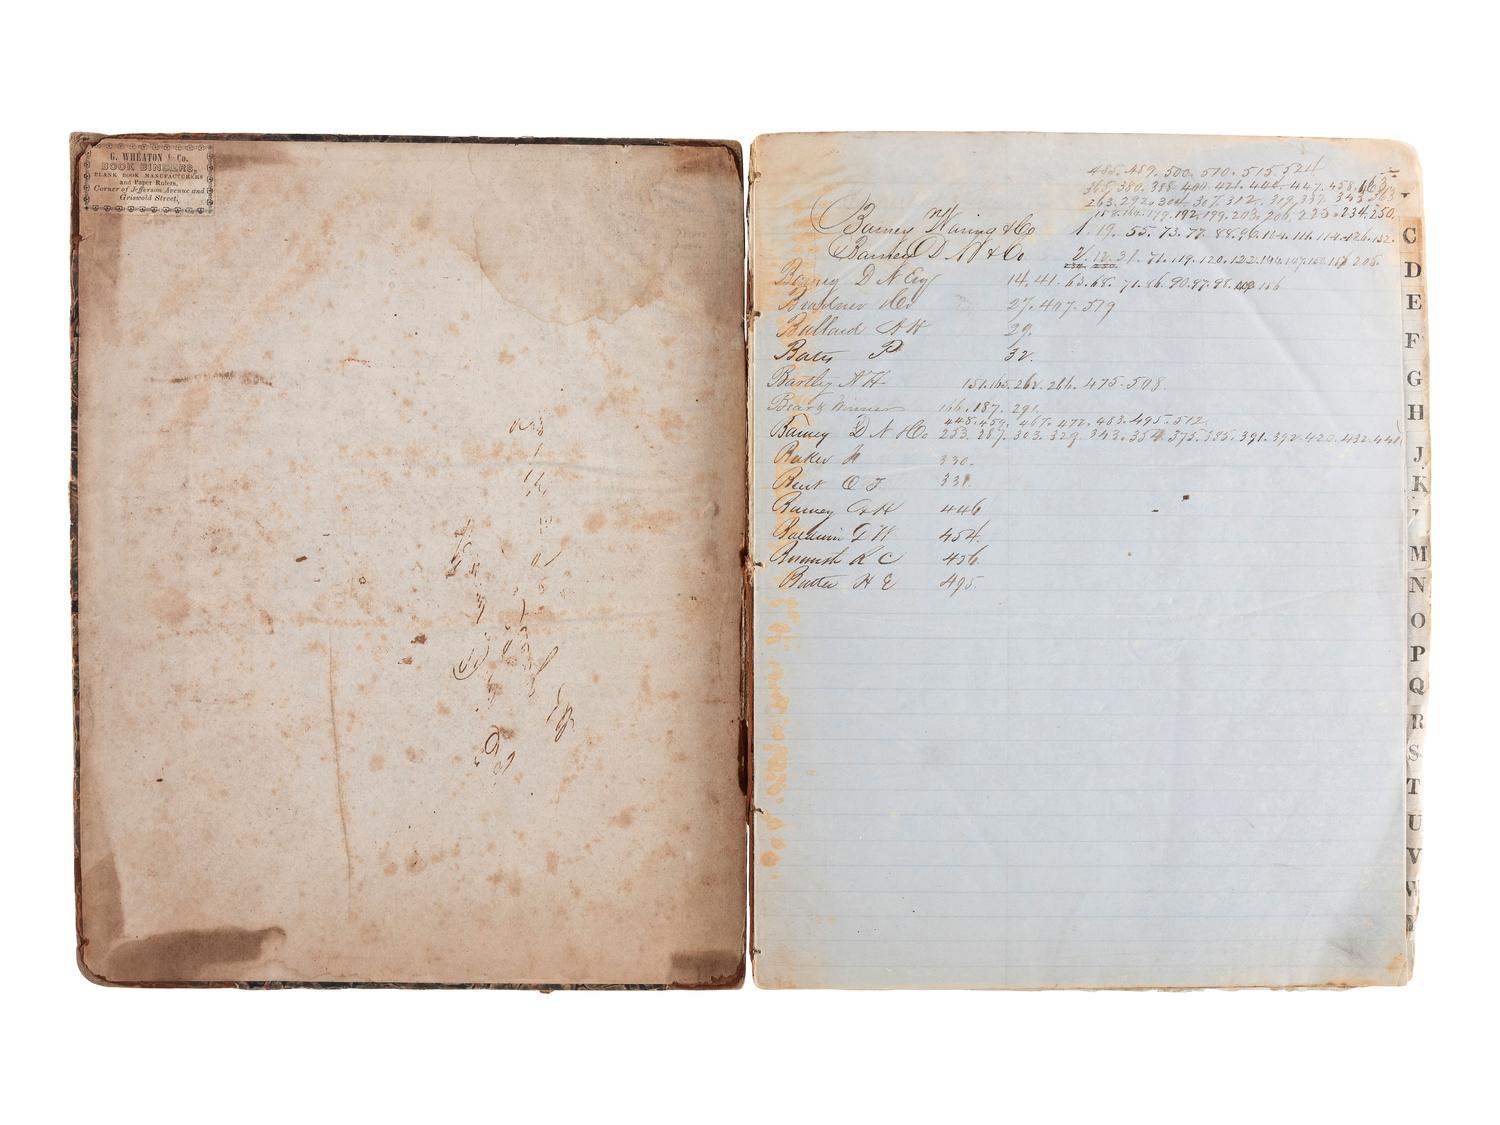 G. WHEATON & Co.
BOOK BINDERS,
BLANK BOOK MANUFACTURERS
and Paper Rulers,
Corner of Jefferson Avenue and
Griswold Street,
485. 489. 500. 510. 515. 524
365. 380. 388. 400. 421. 444. 447. 458.
263. 292. 304. 307. 312. 319. 337. 343. 363
158. 164. 179. 192. 199. 203. 206. 225. 234. 250.
Barney Waring & Co 1. 19. 55. 73. 77. 88. 96. 104. 111. 114. 126. 132.
Barney D N & Co 2. 12. 31. 71. 119. 120. 122. 144. 147. 206.
Barney D N Esq 14. 41. 63. 68. 71. 86. 90. 97. 98. 186
Bradner & Co 27. 407. 519
Bullard A H 29.
Bates P 32.
Bartley N H 151. 165. 262. 266. 475. 508.
166. 187. 291.
448. 459. 467. 472. 483. 495. 512.
Barney D N & Co 253. 287. 303. 329. 343. 354. 375. 385. 391. 392. 420. 432. 441
Baker H 330.
Bent O F 331.
Barney G H 446
Baldwin G W 454.
K C 456
H E 495.
C
D
E
F
G
H
J
K
M
N
O
P
Q
R
S
T
U
V
W